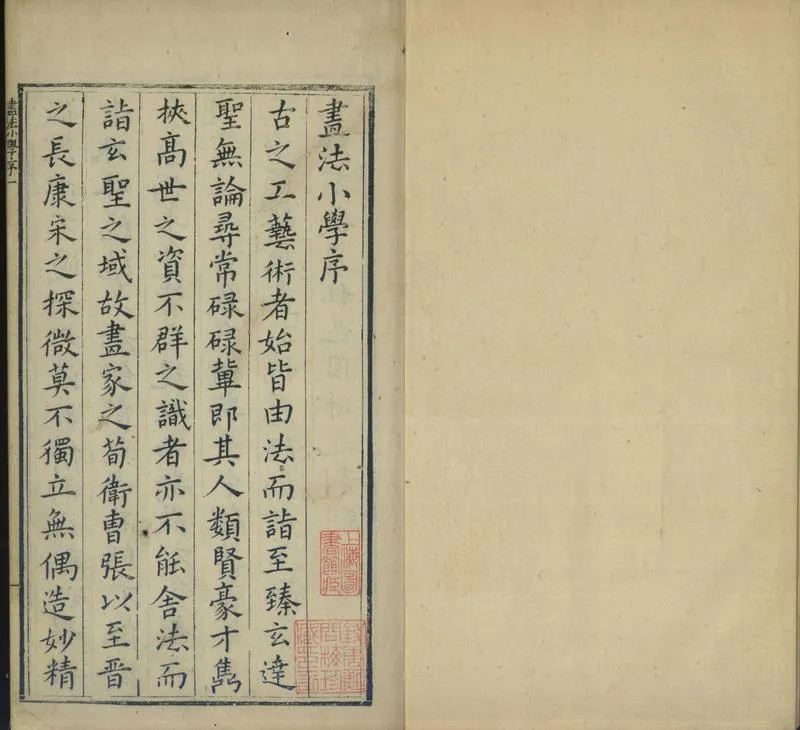 畫法小學序
古之工藝術者始皆由法而詣至臻玄達
聖無論尋常碌碌輩即其人類賢豪才雋
挾高世之資不群之識者亦不能舍法而
詣玄聖之域故畫家之荀衛曹張以至晉
之長康宋之探微莫不獨立無偶造妙精
畫法小學序 一
上海圖書館藏